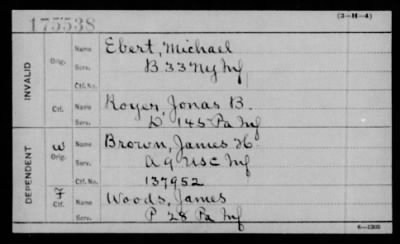 175538 (3-H-4)
INVALID
Orig.
Name Ebert, Michael
Serv. B 33 NY Inf
Ctf. No.
Ctf.
Name Koyer, Jonas B.
Serv. D 145 Pa Inf
DEPENDENT
W
Orig.
Name Brown, James H.
Serv. A 9 USC Inf
Ctf. No. 137952
F
Ctf.
Name Woods, James
Serv. P 28 Pa Inf